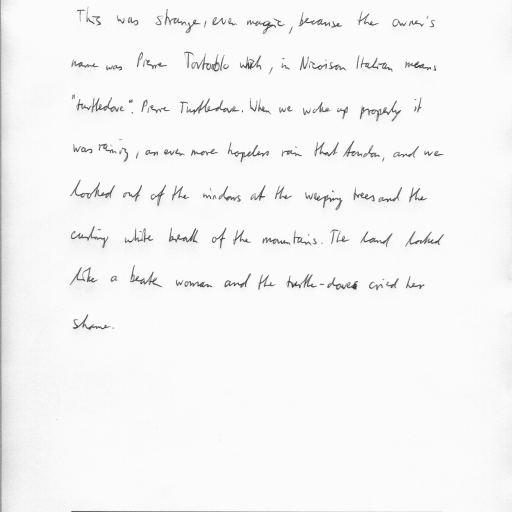 This was strange, even magic, because the owner's
name was Pierre Tortorblo which, in Nicoison Italian means
"turtledove". Pierre Turtledove. When we woke up properly it
was raining, an even more hopeless rain that London, and we
looked out of the windows at the weeping trees and the
curling white breath of the mountains. The land looked
like a beaten woman and the turtle-doves cried her
shame.